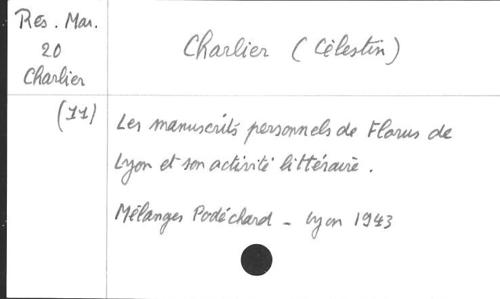 Rés. Mar.
20
Charlier
Charlier (Célestin)
(11)
Les manuscrits personnels de Florus de
Lyon et son activité littéraire.
Mélanges Podéchard - Lyon 1943